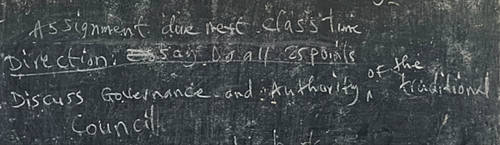 Assignment due next class time
Direction: Essay. Do all 25 points
Discuss Governance and Authority of the traditional
Council